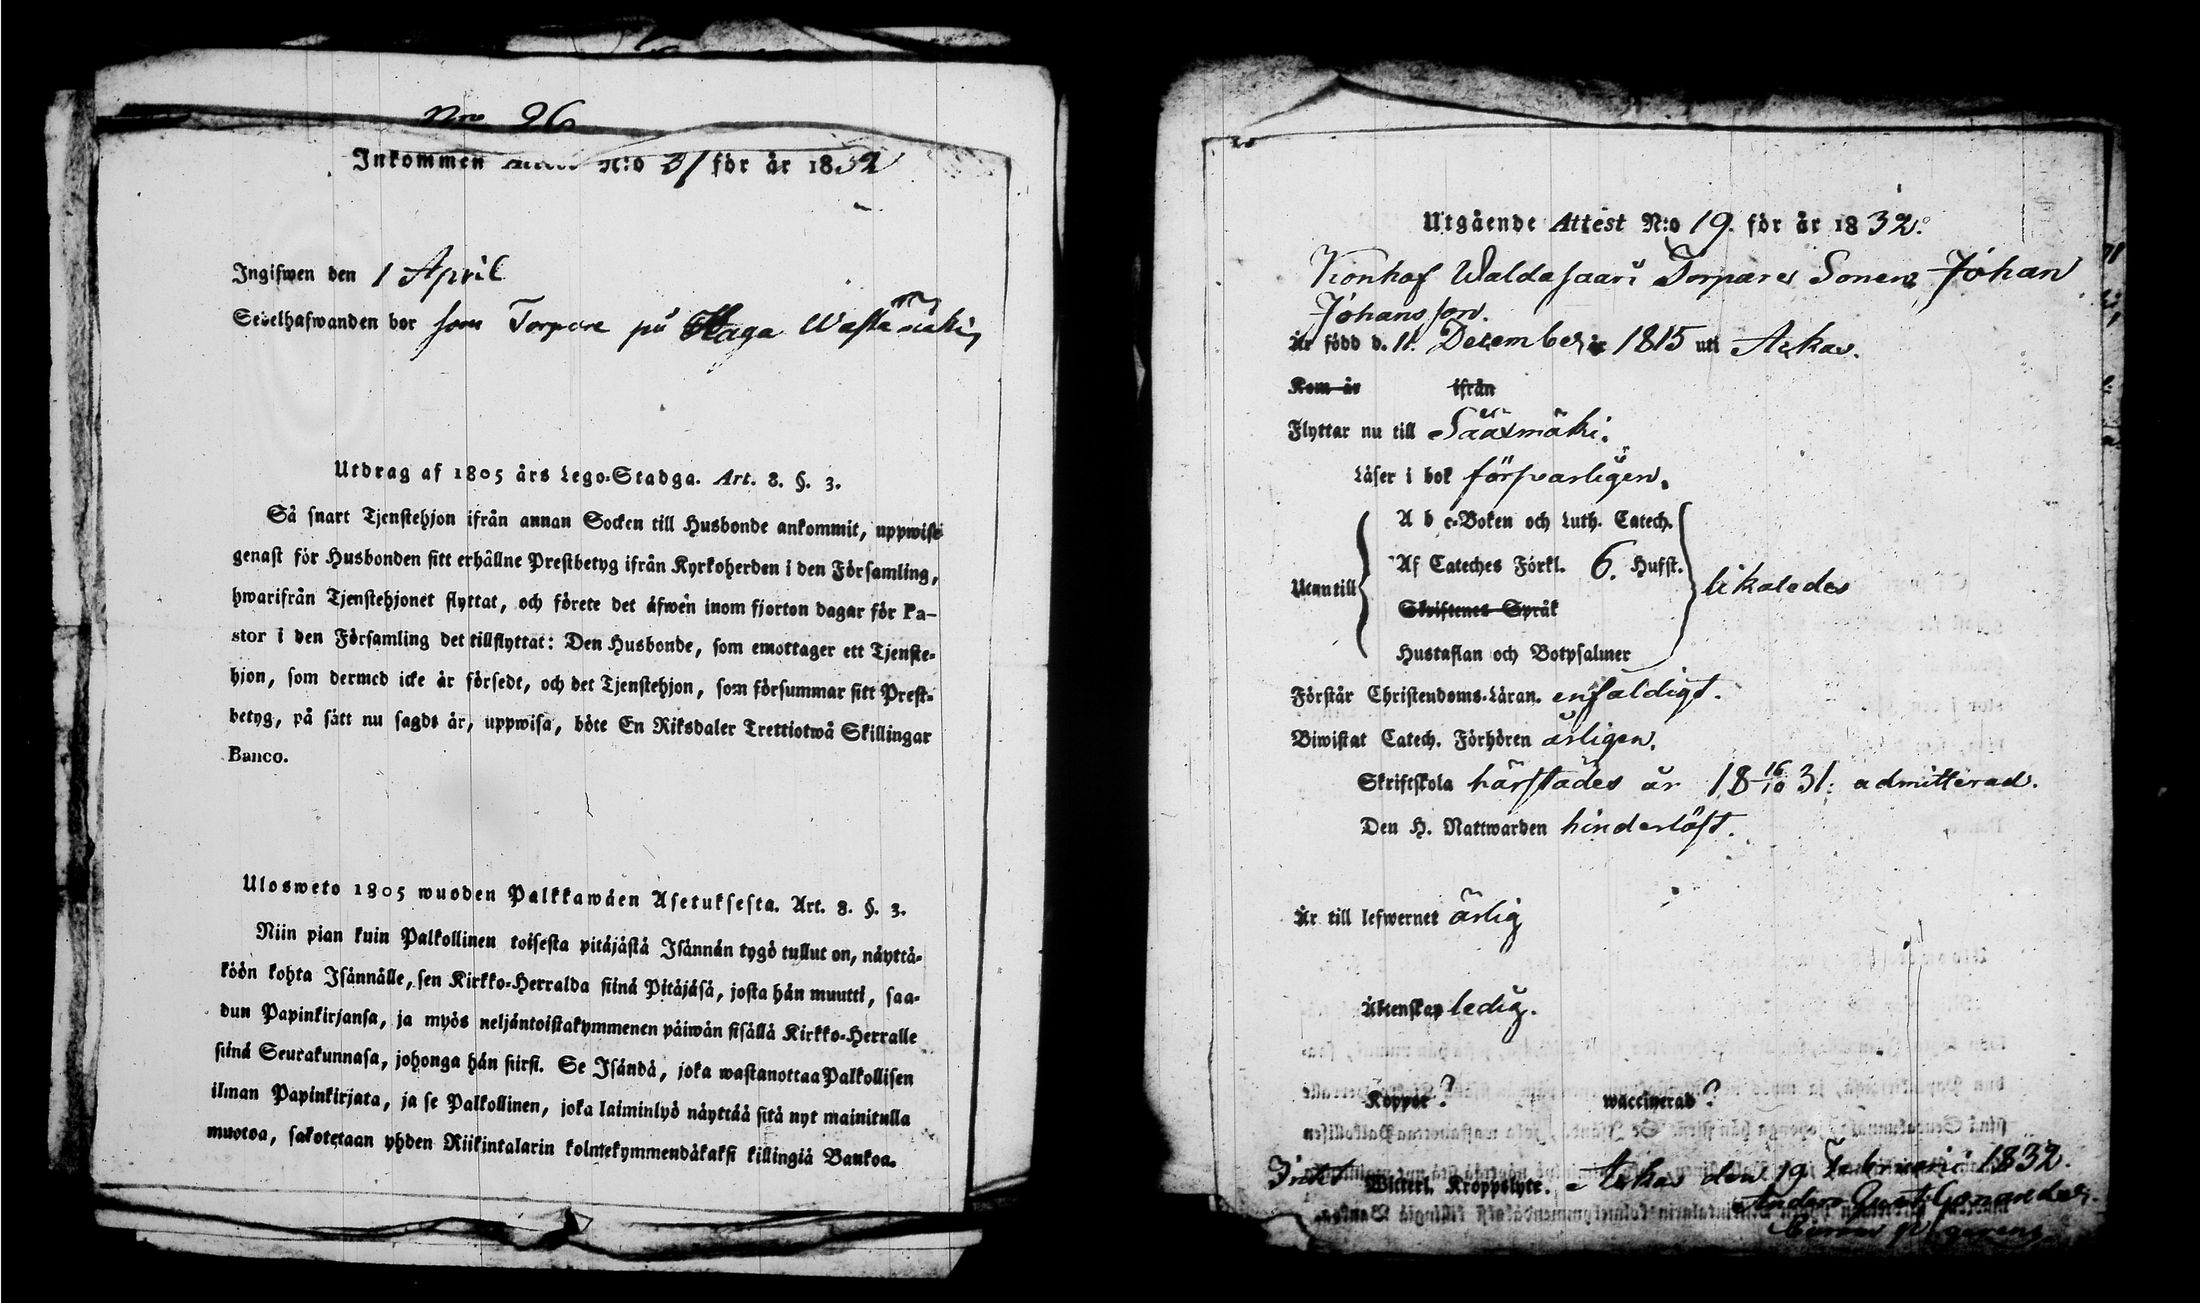 Nro 26
Inkommen Attest N:o 31 för år 1832
Ingifwen den 1 April
Sedelhafwanden bor som Torpare på Haga Wastamäki
Utdrag af 1805 års Lego-Stadga. Art. 8. §. 3.
Så snart Tjenstehjon ifrån annan Socken till Husbonde ankommit, uppwise
genast för Husbonden sitt erhållne Prestbetyg ifrån Kyrkoherden i den Församling,
hwarifrån Tjenstehjonet flyttat, och förete det äfwen inom fjorton dagar för Pa-
stor i den Församling det tillflyttat: Den Husbonde, som emottager ett Tjenste-
hjon, som dermed icke är försedt, och det Tjenstehjon, som försummar sitt Prest-
betyg, på sätt nu sagdt är, uppwisa, böte En Riksdaler Trettiotwå Skillingar
Banco.
Ulosweto 1805 wuoden Palkkawäen Asetuksesta. Art. 8. §. 3.
Niin pian kuin Palkollinen toisesta pitäjästä Isännän tygö tullut on, näyttä-
köön kohta Isännälle, sen Kirkko-Herralda siinä Pitäjäsä, josta hän muutti, saa-
dun Papinkirjansa, ja myös neljäntoistakymmenen päiwän sisällä Kirkko-Herralle
siinä Seurakunnasa, johonga hän siirsi. Se Isändä, joka wastanottaa Palkollisen
ilman Papinkirjata, ja se Palkollinen, joka laiminlyö näyttää sitä nyt mainitulla
muotoa, sakotetaan yhden Riikintalarin kolmekymmendäkaksi killingiä Bankoa.
Utgående Attest N:o 19. för år 1832.
Konhof Waldasaari Torpare Sonen Johan
Johansson.
Är född d. 11. December 1815 uti Ackas.
Kom år ifrån
Flyttar nu till Sääxmäki.
Läser i bok försvarligen.
Utantill
A b c-Boken och Luth. Catech.
Af Cateches Förkl. 6. Hufst.
Skriftenes Språk
Hustaflan och Botpsalmer
likaledes
Förstår Christendoms-Läran. enfaldigt.
Biwistat Catech. Förhören årligen.
Skriftskola härstädes år 18 16/10 31. admitterad.
Den H. Nattwarden hinderlöst.
Är till lefwernet ärlig
Äktenskap ledig.
Koppor? waccinerad?
Intet Witterl. Kroppslyte. Ackas den 19 Februarii 1832.